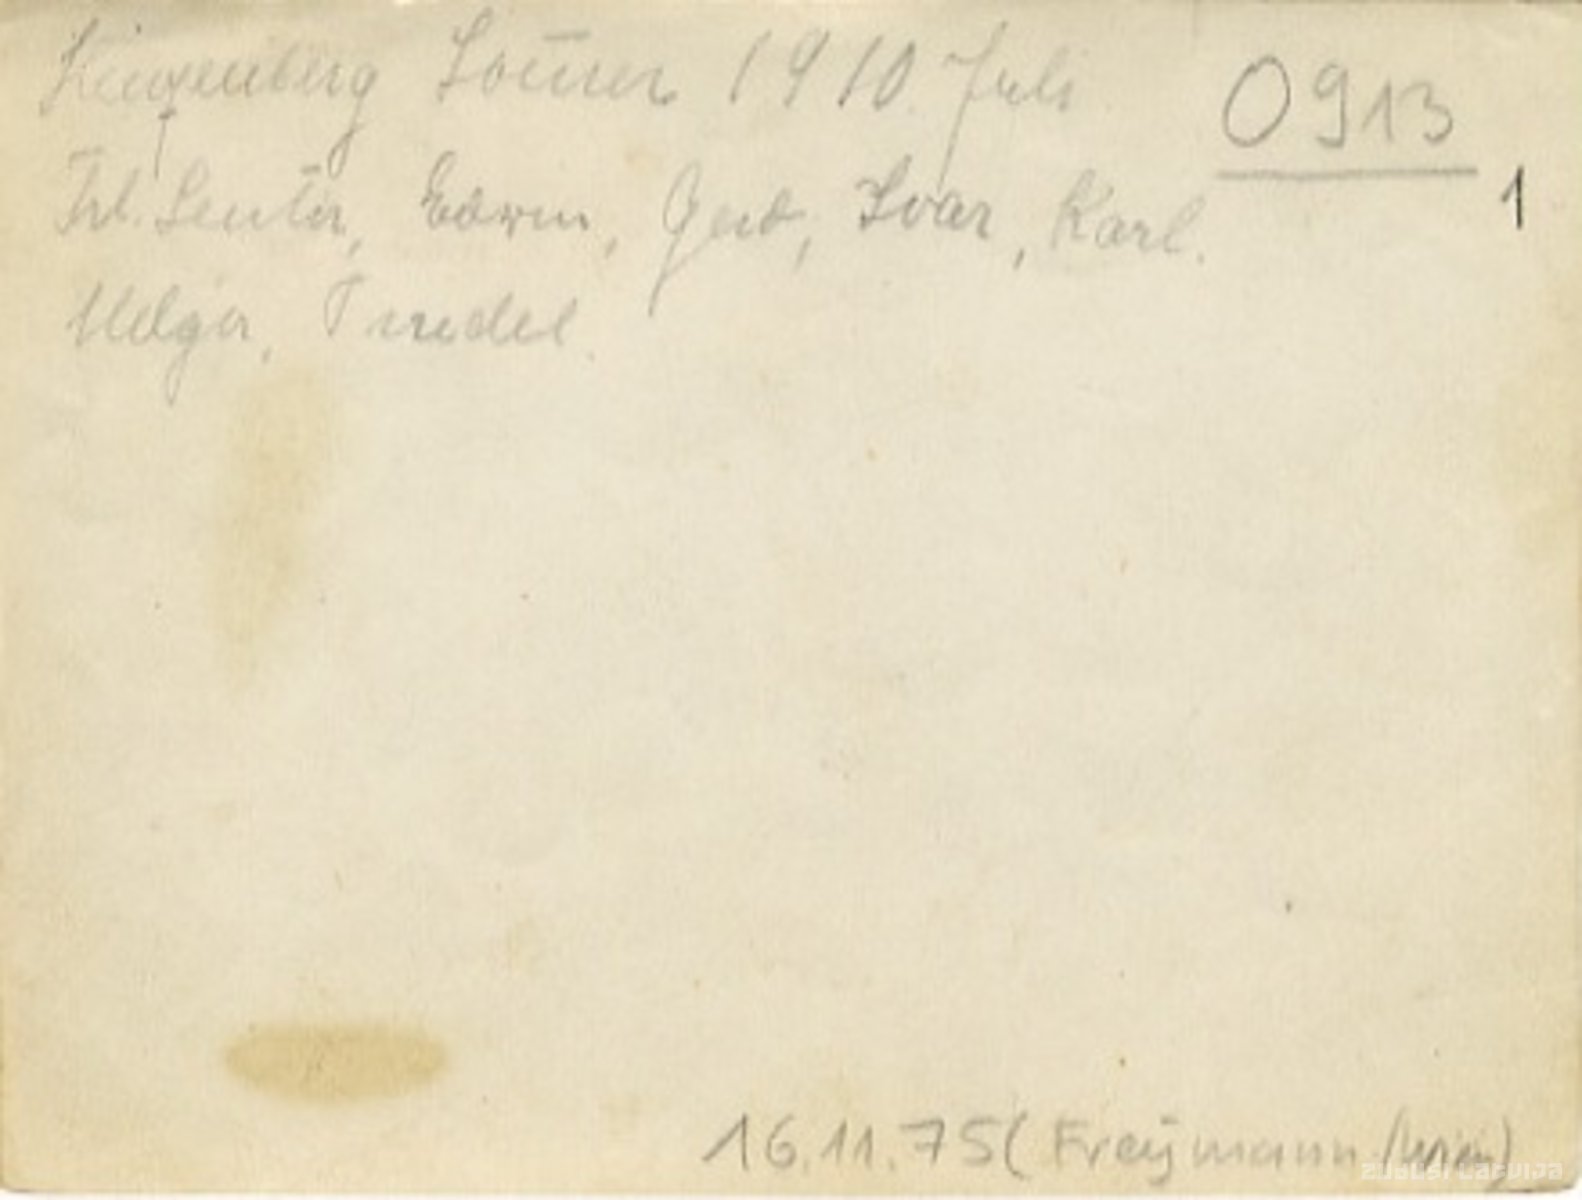 Sommer 1910. Juli
0913
1
Frl. Edwin, Gert, Ivar, Karl.
Helga, Friedel.
16.11.75 (Freymann
ZUDUSI LATVIJA